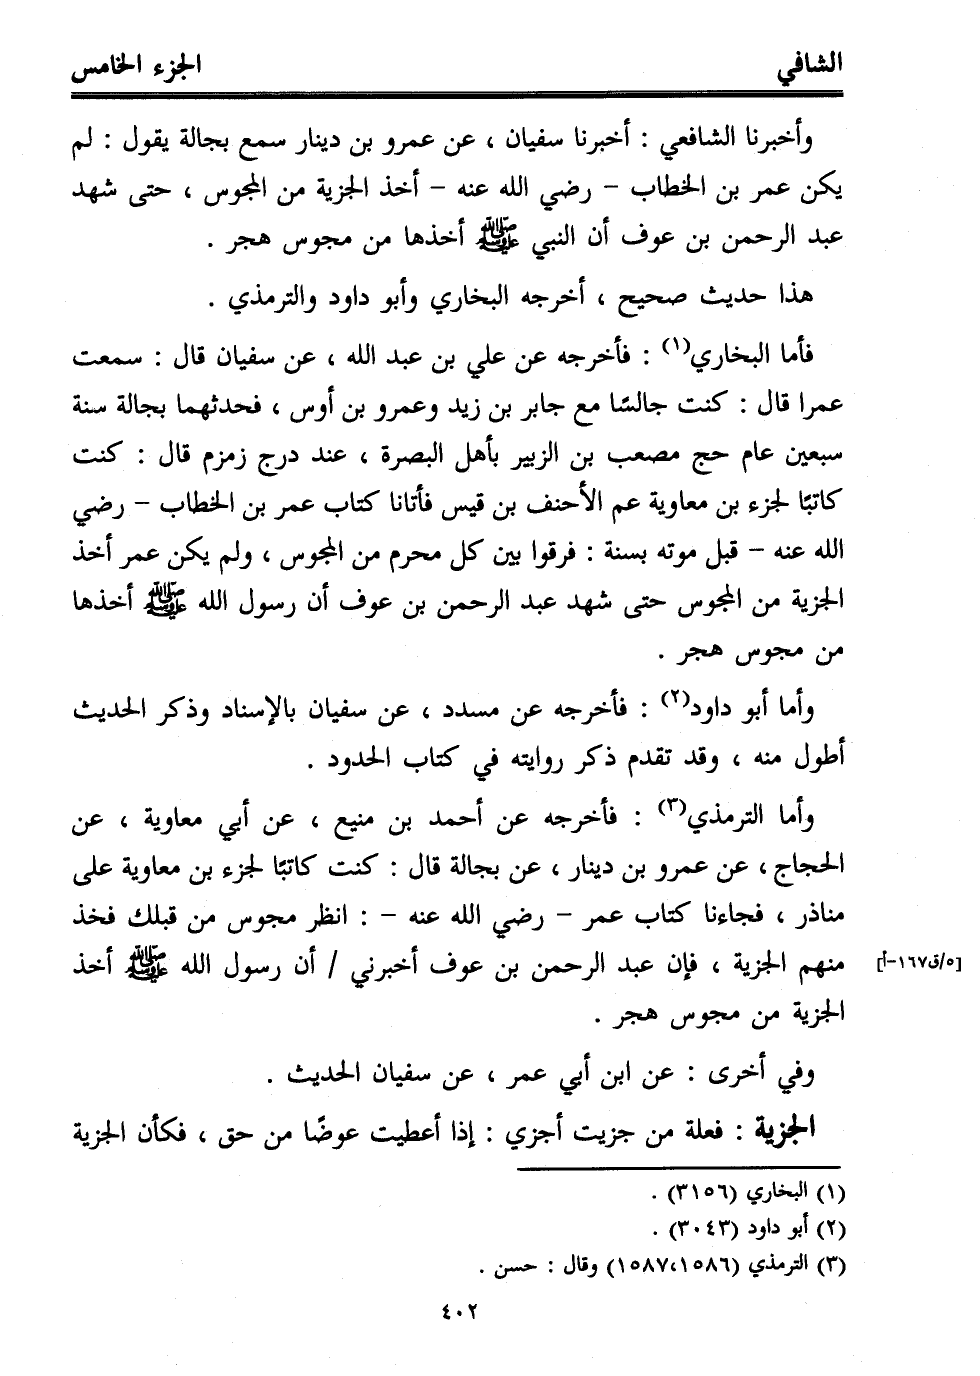 الشافي
الجزء الخامس
وأخبرنا الشافعي : أخبرنا سفيان ، عن عمرو بن دينار سمع بجالة يقول : لم
يكن عمر بن الخطاب – رضي الله عنه – أخذ الجزية من المجوس ، حتى شهد
عبد الرحمن بن عوف أن النبي ﷺ أخذها من مجوس هجر .
هذا حديث صحيح ، أخرجه البخاري وأبو داود والترمذي .
فأما البخاري(١) : فأخرجه عن علي بن عبد الله ، عن سفيان قال : سمعت
عمرا قال : كنت جالسًا مع جابر بن زيد وعمرو بن أوس ، فحدثهما بجالة سنة
سبعين عام حج مصعب بن الزبير بأهل البصرة ، عند درج زمزم قال : كنت
كاتبًا لجزء بن معاوية عم الأحنف بن قيس فأتانا كتاب عمر بن الخطاب – رضي
الله عنه – قبل موته بسنة : فرقوا بين كل محرم من المجوس ، ولم يكن عمر أخذ
الجزية من المجوس حتى شهد عبد الرحمن بن عوف أن رسول الله ﷺ أخذها
من مجوس هجر .
وأما أبو داود(٢) : فأخرجه عن مسدد ، عن سفيان بالإسناد وذكر الحديث
أطول منه ، وقد تقدم ذكر روايته في كتاب الحدود .
وأما الترمذي(٣) : فأخرجه عن أحمد بن منيع ، عن أبي معاوية ، عن
الحجاج ، عن عمرو بن دينار ، عن بجالة قال : كنت كاتبًا لجزء بن معاوية على
مناذر ، فجاءنا كتاب عمر – رضي الله عنه – : انظر مجوس من قبلك فخذ
منهم الجزية ، فإن عبد الرحمن بن عوف أخبرني / أن رسول الله ﷺ أخذ
[٥/ق١٦٧-أ]
الجزية من مجوس هجر .
وفي أخرى : عن ابن أبي عمر ، عن سفيان الحديث .
الجزية : فعلة من جزيت أجزي : إذا أعطيت عوضًا من حق ، فكأن الجزية
(١) البخاري (٣١٥٦) .
(٢) أبو داود (٣٠٤٣) .
(٣) الترمذي (١٥٨٧،١٥٨٦) وقال : حسن .
٤٠٢